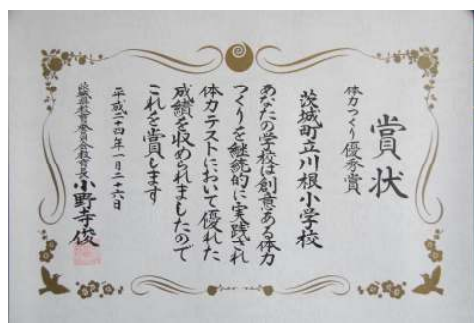 賞状
体力つくり優秀賞
茨城町立川根小学校
あなたの学校は創意ある体力
つくりを継続的に実践され
体力テストにおいて優れた
成績を収められましたので
これを賞します
平成二十四年一月二十六日
茨城県教育委員会教育長 小野寺俊